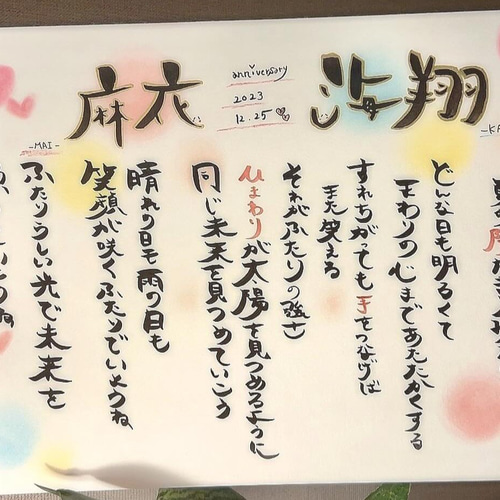 麻衣
海翔
anniversary
2023
12.25
-MAI-
どんな日も明るくて
まわりの心まであたたかくする
すれちがっても手をつなげば
また笑える
それがふたりの強さ
ひまわりが太陽を見つめるように
同じ未来を見つめていこう
晴れの日も雨の日も
笑顔が咲くふたりでいようね
ふたりらしい光で未来を